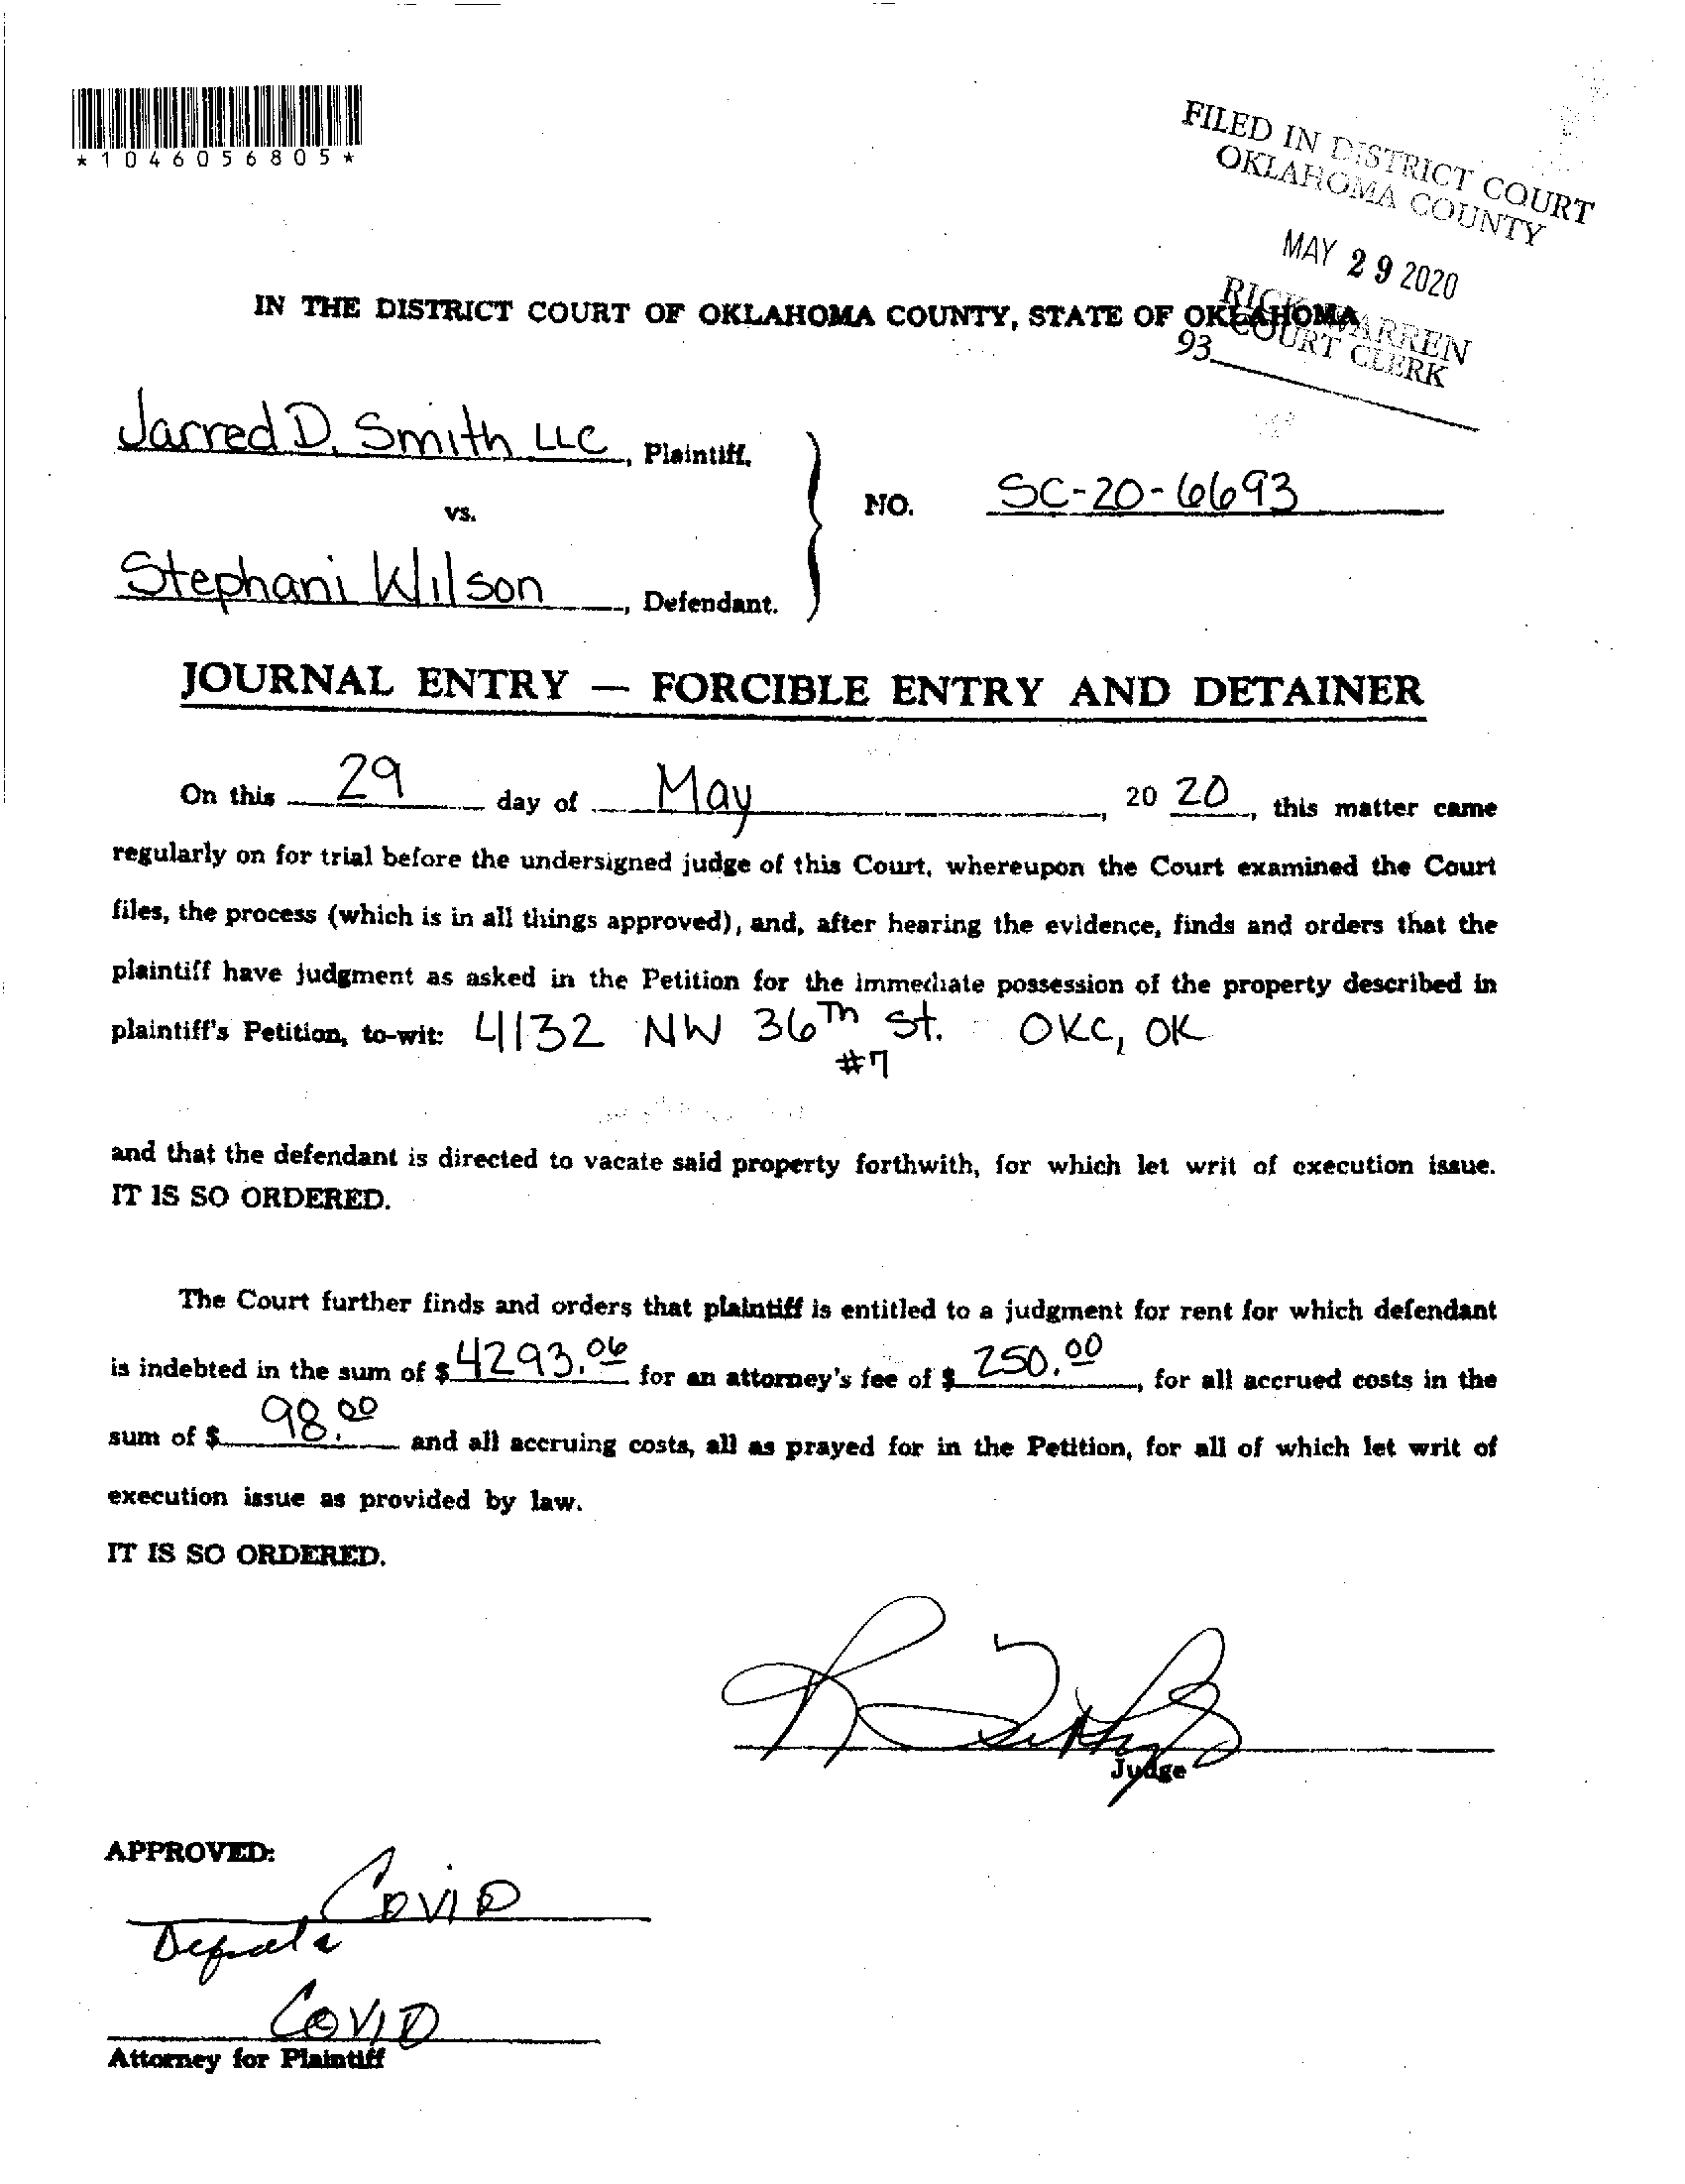 *1046056805*
FILED IN DISTRICT COURT
OKLAHOMA COUNTY
MAY 29 2020
RICK WARREN
COURT CLERK
93
IN THE DISTRICT COURT OF OKLAHOMA COUNTY, STATE OF OKLAHOMA
Jarred D. Smith LLC, Plaintiff,
vs.
NO. SC-20-6693
Stephani Wilson, Defendant.
JOURNAL ENTRY — FORCIBLE ENTRY AND DETAINER
On this 29 day of May, 20 20, this matter came
regularly on for trial before the undersigned judge of this Court, whereupon the Court examined the Court
files, the process (which is in all things approved), and, after hearing the evidence, finds and orders that the
plaintiff have judgment as asked in the Petition for the immediate possession of the property described in
plaintiff's Petition, to-wit: 4132 NW 36Th St. OKC, OK
#7
and that the defendant is directed to vacate said property forthwith, for which let writ of execution issue.
IT IS SO ORDERED.
The Court further finds and orders that plaintiff is entitled to a judgment for rent for which defendant
is indebted in the sum of $4293.06 for an attorney's fee of $ 250.00, for all accrued costs in the
sum of $ 98.00 and all accruing costs, all as prayed for in the Petition, for all of which let writ of
execution issue as provided by law.
IT IS SO ORDERED.
Judge
APPROVED:
COVID
COVID
Attorney for Plaintiff